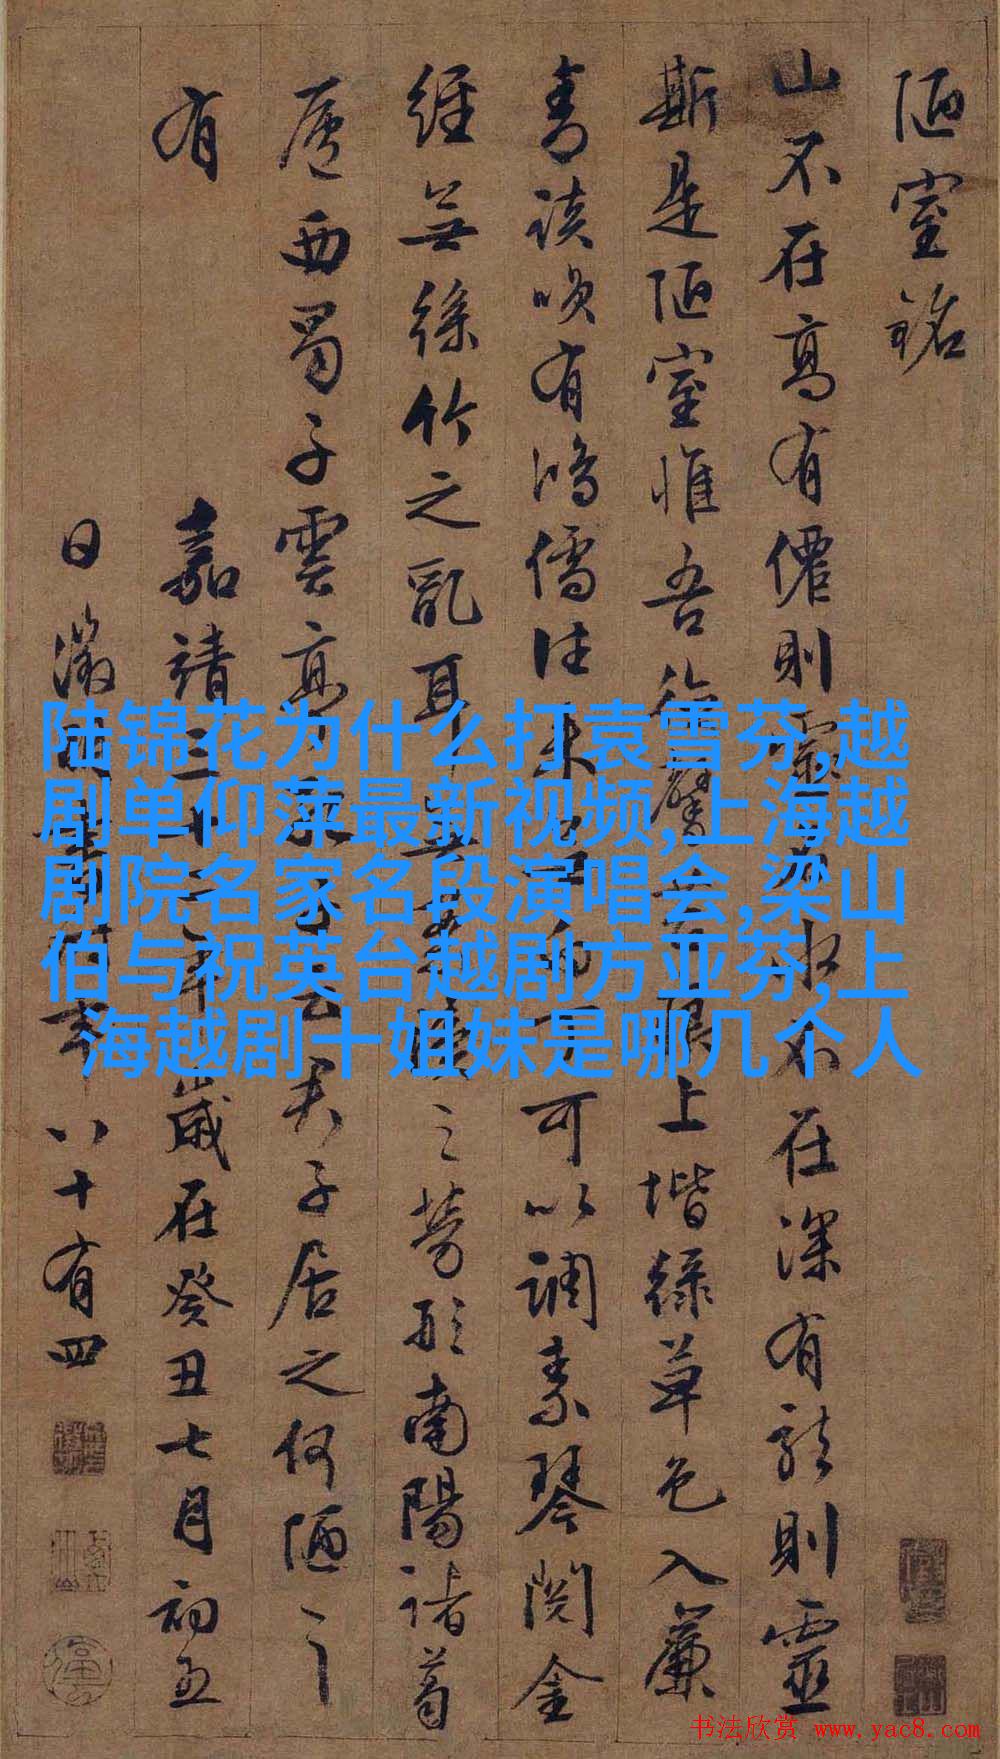 陋室銘
山不在高有僊則水不在深有龍則靈
斯是陋室惟吾德馨苔痕上堦綠草色入簾
青談咲有鴻儒往来白丁可以調素琴閱金
經無絲竹之亂耳無案牘之勞形南陽諸葛
廬西蜀子雲亭孔子云君子居之何陋之
有
嘉靖三十二年歲在癸丑七月初五
日徵明書時年八十有四
陆锦花为什么打袁雪芬,越
剧单仰萍最新视频,上海越
剧院名家名段演唱会,梁山
伯与祝英台越剧方亚芬,上
海越剧十姐妹是哪几个人
书法欣赏 www.yac8.com